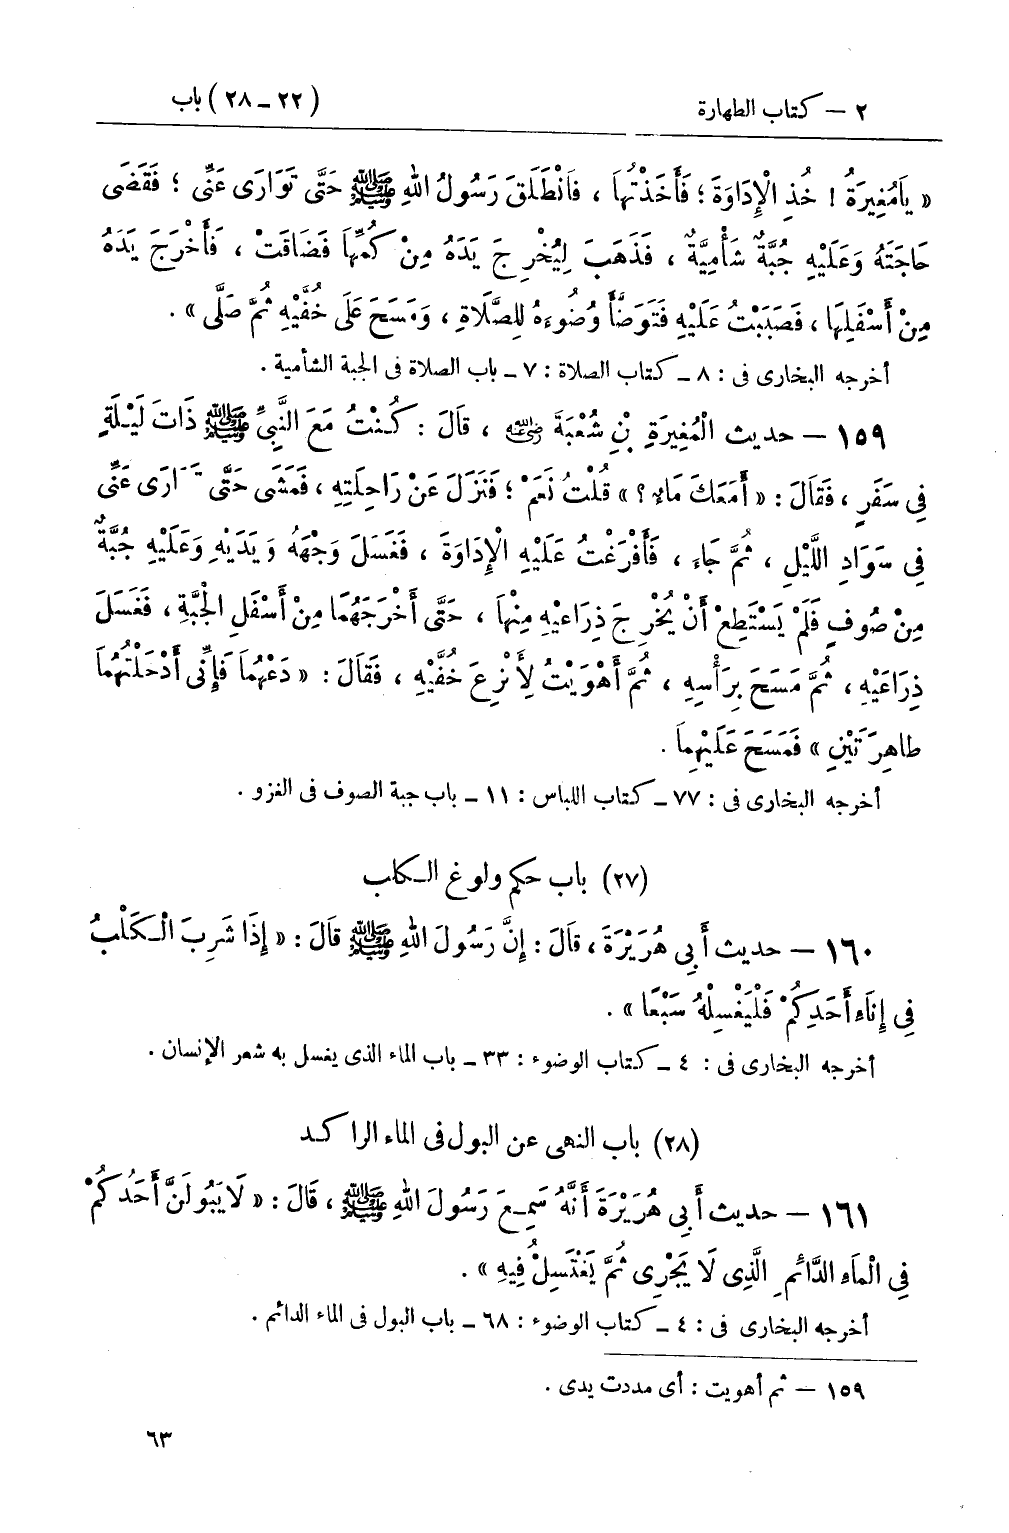 ٢ – كتاب الطهارة (٢٢ – ٢٨) باب
« يَامُغِيرَةُ ! خُذِ الْإِدَاوَةَ ؛ فَأَخَذْتُهَا ، فَانْطَلَقَ رَسُولُ اللهِ ﷺ حَتَّى تَوَارَى عَنِّى ؛ فَقَضَى
حَاجَتَهُ وَعَلَيْهِ جُبَّةٌ شَأْمِيَّةٌ ، فَذَهَبَ لِيُخْرِجَ يَدَهُ مِنْ كُمِّهَا فَضَاقَتْ ، فَأَخْرَجَ يَدَهُ
مِنْ أَسْفَلِهَا ، فَصَبَبْتُ عَلَيْهِ فَتَوَضَّأَ وُضُوءَهُ لِلصَّلَاةِ ، وَمَسَحَ عَلَى خُفَّيْهِ ثُمَّ صَلَّى » .
أخرجه البخارى فى : ٨ – كتاب الصلاة : ٧ – باب الصلاة فى الجبة الشأمية .
١٥٩ – حديث الْمُغِيرَةِ بْنِ شُعْبَةَ رضي الله عنه ، قَالَ : كُنْتُ مَعَ النَّبِىِّ ﷺ ذَاتَ لَيْلَةٍ
فِى سَفَرٍ ، فَقَالَ : « أَمَعَكَ مَاءٌ ؟ » قُلْتُ نَعَمْ ؛ فَنَزَلَ عَنْ رَاحِلَتِهِ ، فَمَشَى حَتَّى تَوَارَى عَنِّى
فِى سَوَادِ اللَّيْلِ ، ثُمَّ جَاءَ ، فَأَفْرَغْتُ عَلَيْهِ الْإِدَاوَةَ ، فَغَسَلَ وَجْهَهُ وَيَدَيْهِ وَعَلَيْهِ جُبَّةٌ
مِنْ صُوفٍ فَلَمْ يَسْتَطِعْ أَنْ يُخْرِجَ ذِرَاعَيْهِ مِنْهَا ، حَتَّى أَخْرَجَهُمَا مِنْ أَسْفَلِ الْجُبَّةِ ، فَغَسَلَ
ذِرَاعَيْهِ ، ثُمَّ مَسَحَ بِرَأْسِهِ ، ثُمَّ أَهْوَيْتُ لِأَنْزِعَ خُفَّيْهِ ، فَقَالَ : « دَعْهُمَا فَإِنِّى أَدْخَلْتُهُمَا
طَاهِرَتَيْنِ » فَمَسَحَ عَلَيْهِمَا .
أخرجه البخارى فى : ٧٧ – كتاب اللباس : ١١ – باب جبة الصوف فى الغزو .
(٢٧) باب حكم ولوغ الكلب
١٦٠ – حديث أَبِى هُرَيْرَةَ ، قَالَ : إِنَّ رَسُولَ اللهِ ﷺ قَالَ : « إِذَا شَرِبَ الْكَلْبُ
فِى إِنَاءِ أَحَدِكُمْ فَلْيَغْسِلْهُ سَبْعًا » .
أخرجه البخارى فى : ٤ – كتاب الوضوء : ٣٣ – باب الماء الذى يغسل به شعر الإنسان .
(٢٨) باب النهى عن البول فى الماء الراكد
١٦١ – حديث أَبِى هُرَيْرَةَ أَنَّهُ سَمِعَ رَسُولَ اللهِ ﷺ ، قَالَ : « لَا يَبُولَنَّ أَحَدُكُمْ
فِى الْمَاءِ الدَّائِمِ الَّذِى لَا يَجْرِى ثُمَّ يَغْتَسِلُ فِيهِ » .
أخرجه البخارى فى : ٤ – كتاب الوضوء : ٦٨ – باب البول فى الماء الدائم .
١٥٩ – ثم أهويت : أى مددت يدى .
٦٣